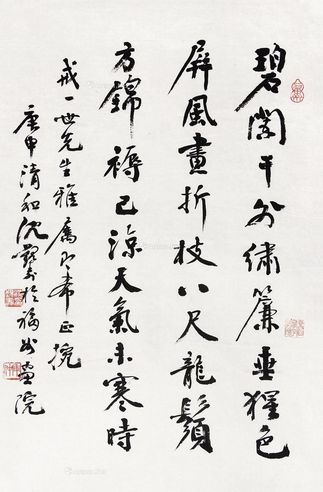 碧闌干外繡簾垂猩色
屏風畫折枝八尺龍鬚
方錦褥已涼天氣未寒時
戒一世先生雅屬即希正
庚申清和沈覲壽於福州畫院